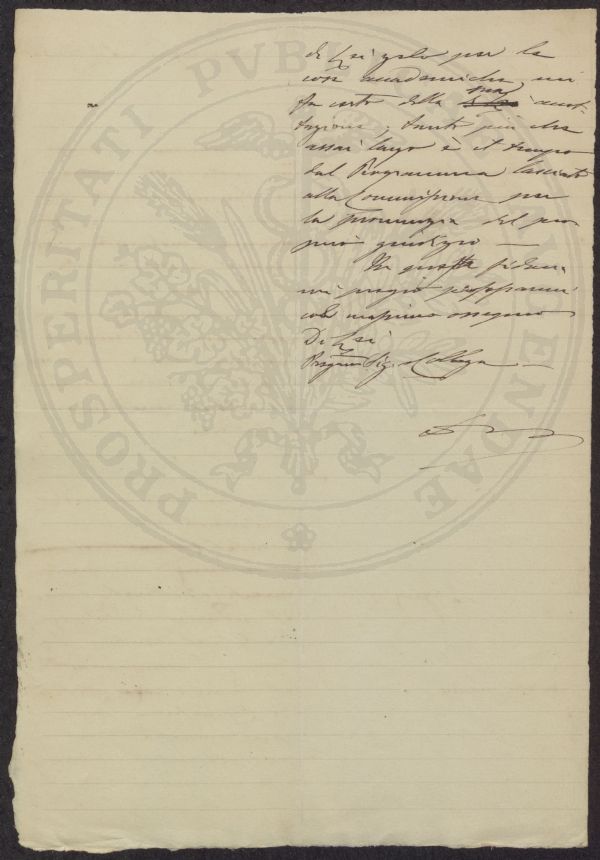 PROSPERITATI PVBLICAE AVGENDAE
di Lei zelo per le
cose accademiche mi
fa certo della sua accet-
tazione; tanto più che
assai lungo è il tempo
dal Programma lasciato
alla Commissione per
la pronunzia del pro-
prio giudizio —
In questa fidu-
mi pregio professarmi
col massimo ossequio
Di Lei
Sig. Collega —